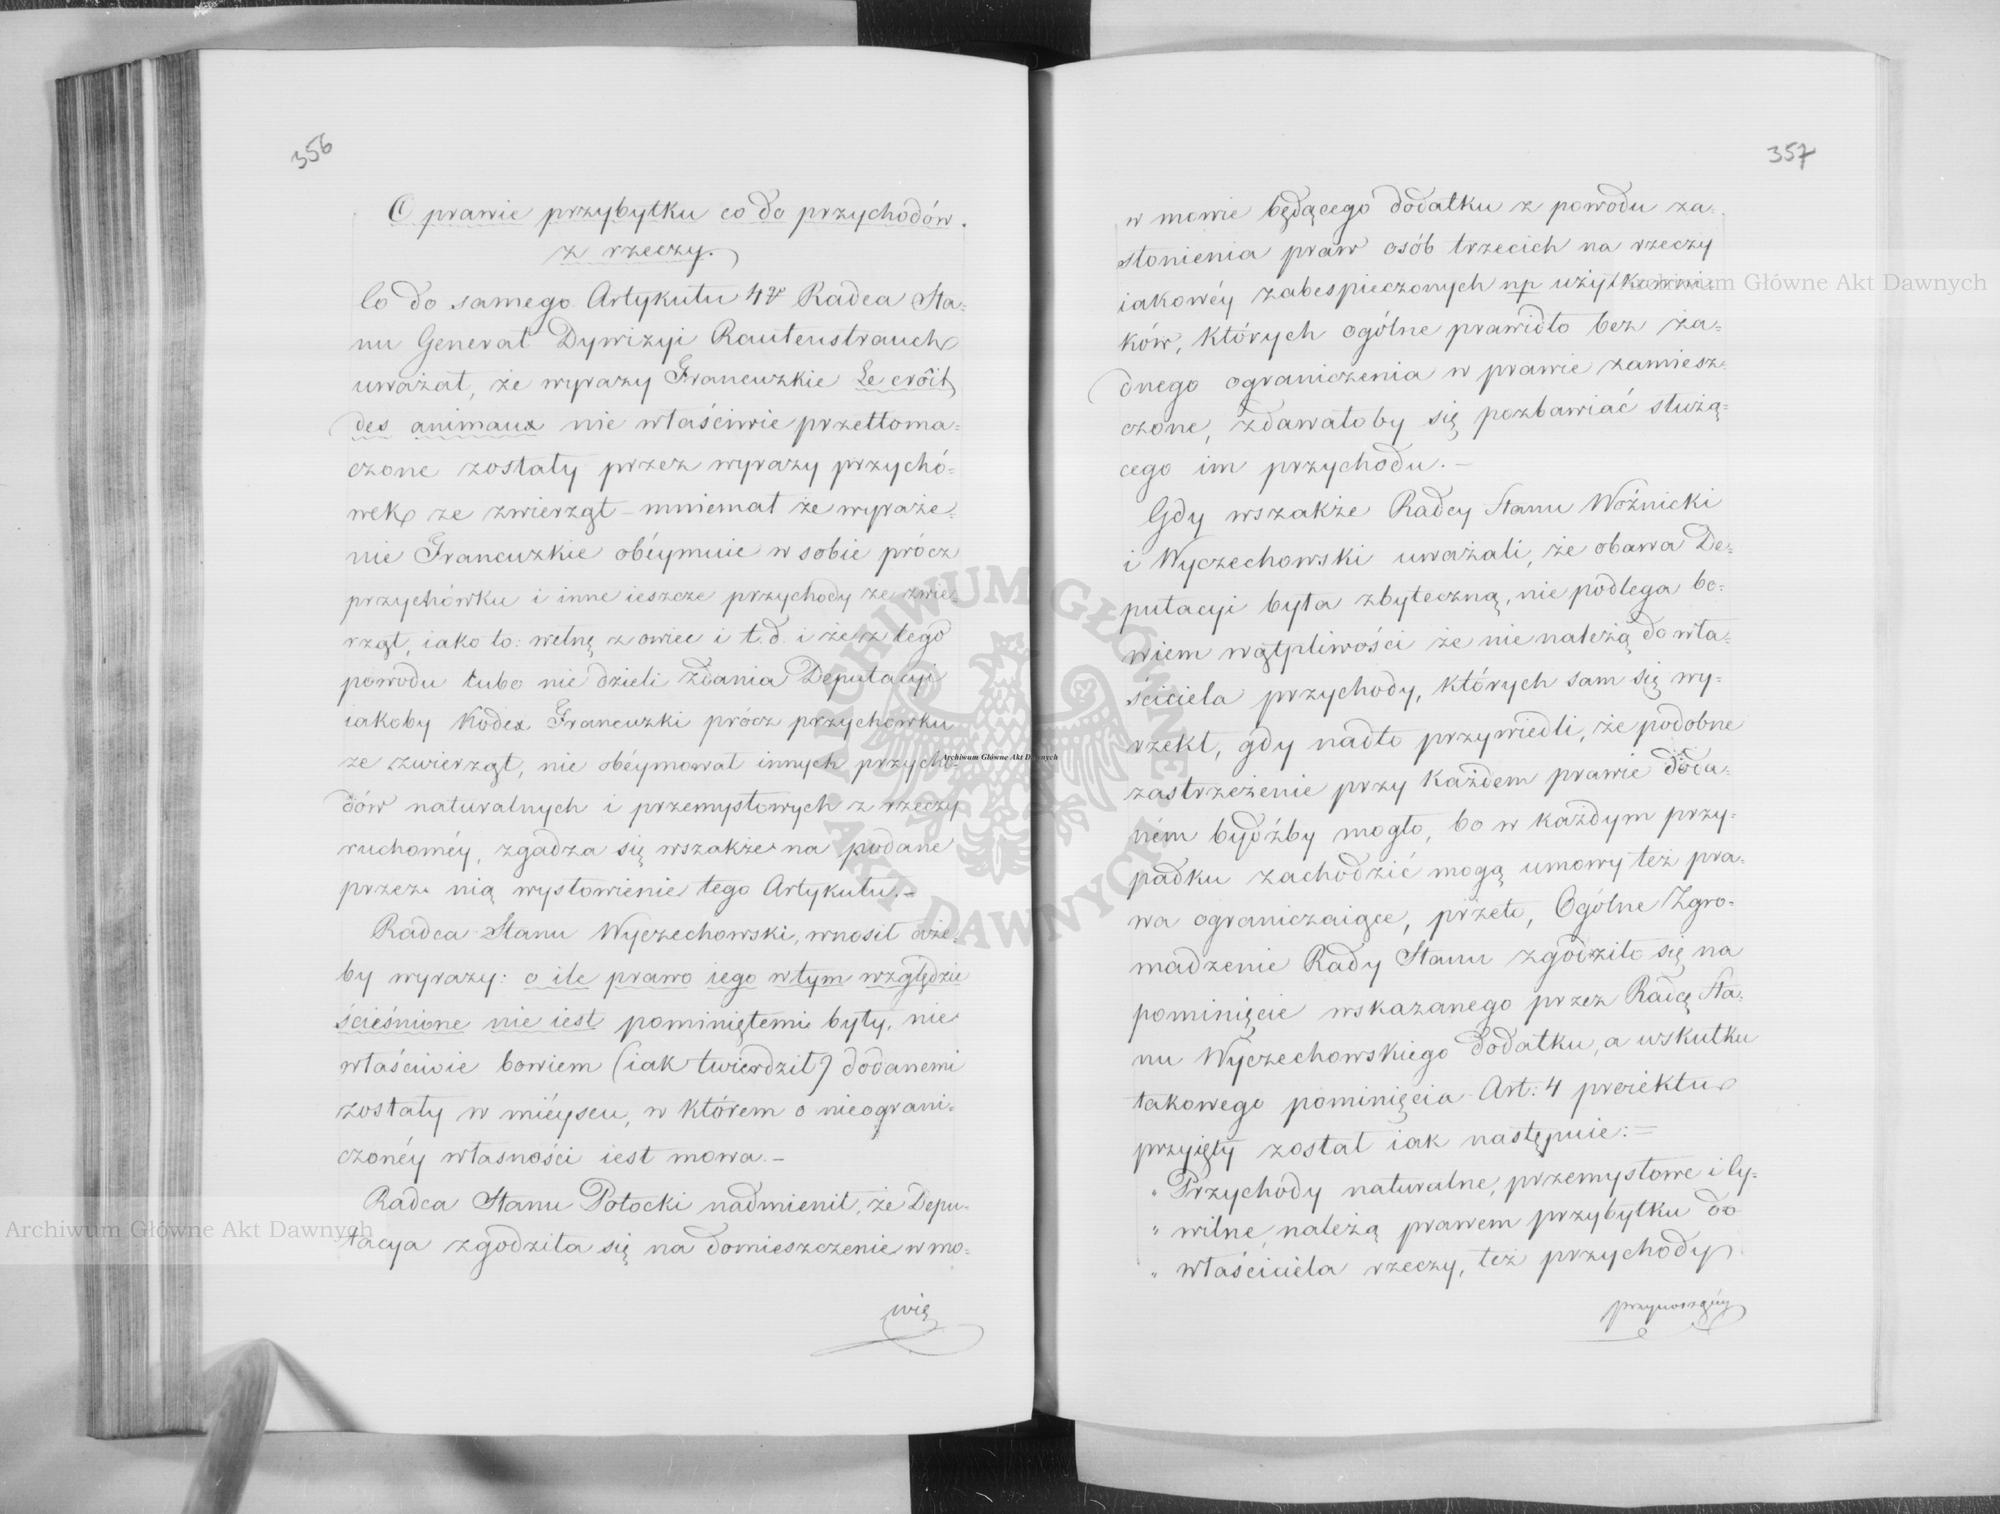 356
O prawie przybytku co do przychodów
z rzeczy.
Co do samego Artykułu 4º Radca Sta=
nu Generał Dywizyi Rautenstrauch
uważał, że wyrazy Francuzkie Le croît
des animaux nie właściwie przetłoma=
czone zostały przez wyrazy przychó=
wek ze zwierząt – mniemał że wyraże=
nie Francuzkie obéymuie w sobie prócz
przychówku i inne ieszcze przychody ze zwie=
rząt, iako to: wełnę z owiec i t.d. i że z tego
powodu lubo nie dzieli zdania Deputacyi
iakoby Kodex Francuzki prócz przychowku
ze zwierząt, nie obéymował innych przycho=
dów naturalnych i przemysłowych z rzeczy
ruchoméy, zgadza się wszakże na podane
przez nią wysłowienie tego Artykułu.–
Radca Stanu Wyczechowski, wnosił aże=
by wyrazy: o ile prawo iego w tym względzie
ścieśnione nie iest pominiętemi były, nie
właściwie bowiem (iak twierdził) dodanemi
zostały w miéyscu, w którem o nieograni=
czonéy własności iest mowa.–
Radca Stanu Potocki nadmienił, że Depu=
tacya zgodziła się na domieszczenie w mo=
wie
357
w mowie będącego dodatku z powodu za=
słonienia praw osób trzecich na rzeczy
iakowéy zabespieczonych np użytkowni=
ków, których ogólne prawidło bez ża=
dnego ograniczenia w prawie zamiesz=
czone, zdawałoby się pozbawiać służą=
cego im przychodu.–
Gdy wszakże Radcy Stanu Woźnicki
i Wyczechowski uważali, że obawa De=
putacyi była zbyteczną, nie podlega bo=
wiem wątpliwości że nie należą do wła=
ściciela przychody, których sam się wy=
rzekł, gdy nadto przywiedli, że podobne
zastrzeżenie przy każdem prawie doda=
ném bydźby mogło, bo w każdym przy=
padku zachodzić mogą umowy też pra=
wa ograniczaiące, przeto, Ogólne Zgro=
madzenie Rady Stanu zgodziło się na
pominięcie wskazanego przez Radcę Sta=
nu Wyczechowskiego dodatku, a wskutku
takowego pominięcia Art: 4 proiektu
przyięty został iak następuie:=
„ Przychody naturalne, przemysłowe i Cy=
„ wilne, należą prawem przybytku do
„ właściciela rzeczy, też przychody
Archiwum Główne Akt Dawnych
Archiwum Główne Akt Dawnych
Archiwum Główne Akt Dawnych
ARCHIWUM GŁÓWNE AKT DAWNYCH